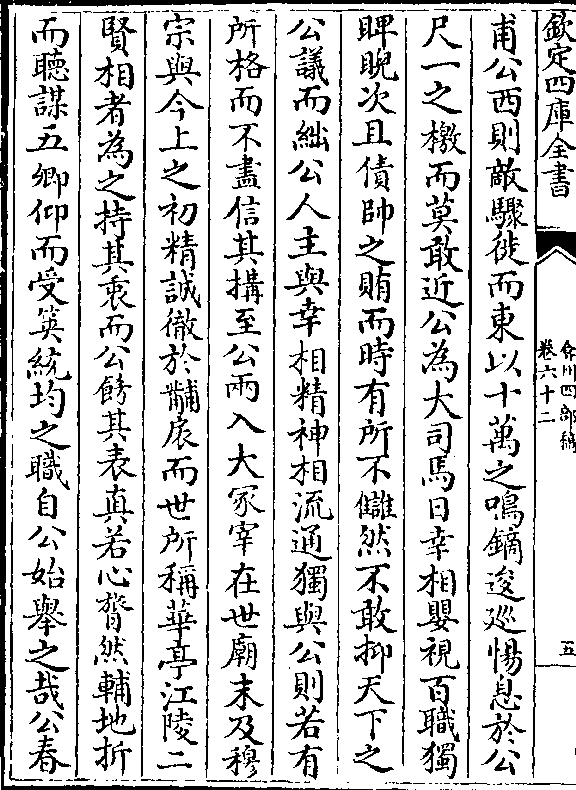 欽定四庫全書
弇州四部稿
卷六十二
五
甫公西則敵驟徙而東以十萬之鳴鏑逡廵惕息於公
尺一之檄而莫敢近公為大司馬日幸相嬰視百職獨
睥睨次且債帥之賄而時有所不讎然不敢抑天下之
公議而絀公人主與幸相精神相流通獨與公則若有
所格而不盡信其搆至公兩入大冢宰在世廟末及穆
宗與今上之初精誠徹於黼扆而世所稱華亭江陵二
賢相者為之持其衷而公餝其表真若心膂然輔地折
而聽謀五卿仰而受筭統均之職自公始舉之哉公春